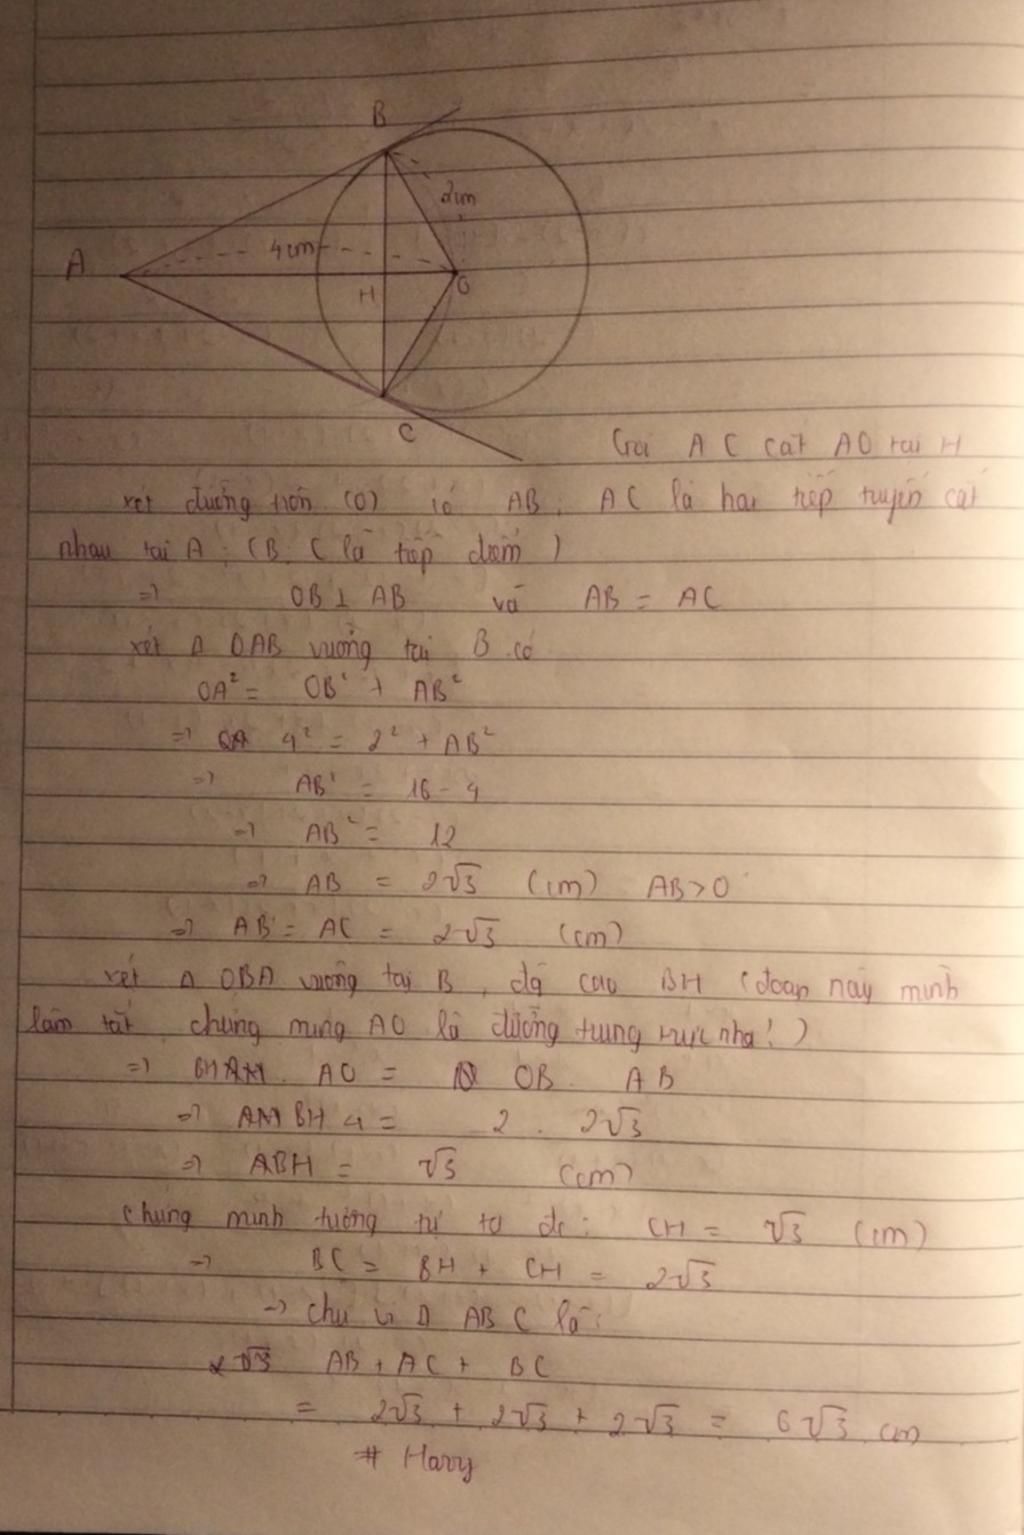 B
2cm
A
4cm
H
O
C
Gọi AC cắt AO tại H
xét đường tròn (O) có AB, AC là hai tiếp tuyến cắt
nhau tại A (B, C là tiếp điểm)
=> OB ⊥ AB và AB = AC
xét Δ OAB vuông tại B có
OA² = OB² + AB²
=> 4² = 2² + AB²
=> AB² = 16 - 4
=> AB² = 12
=> AB = 2√3 (cm) AB>0
=> AB = AC = 2√3 (cm)
xét Δ OBA vuông tại B, đg cao BH (đoạn này mình
làm tắt, chứng ming AO là đường trung trực nha!)
=> BH. AO = OB. AB
=> BH 4 = 2. 2√3
=> BH = √3 (cm)
Chứng minh tương tự ta đc: CH = √3 (cm)
=> BC = BH + CH = 2√3
=> chu vi Δ ABC là:
AB + AC + BC
= 2√3 + 2√3 + 2√3 = 6√3 cm
# Harry